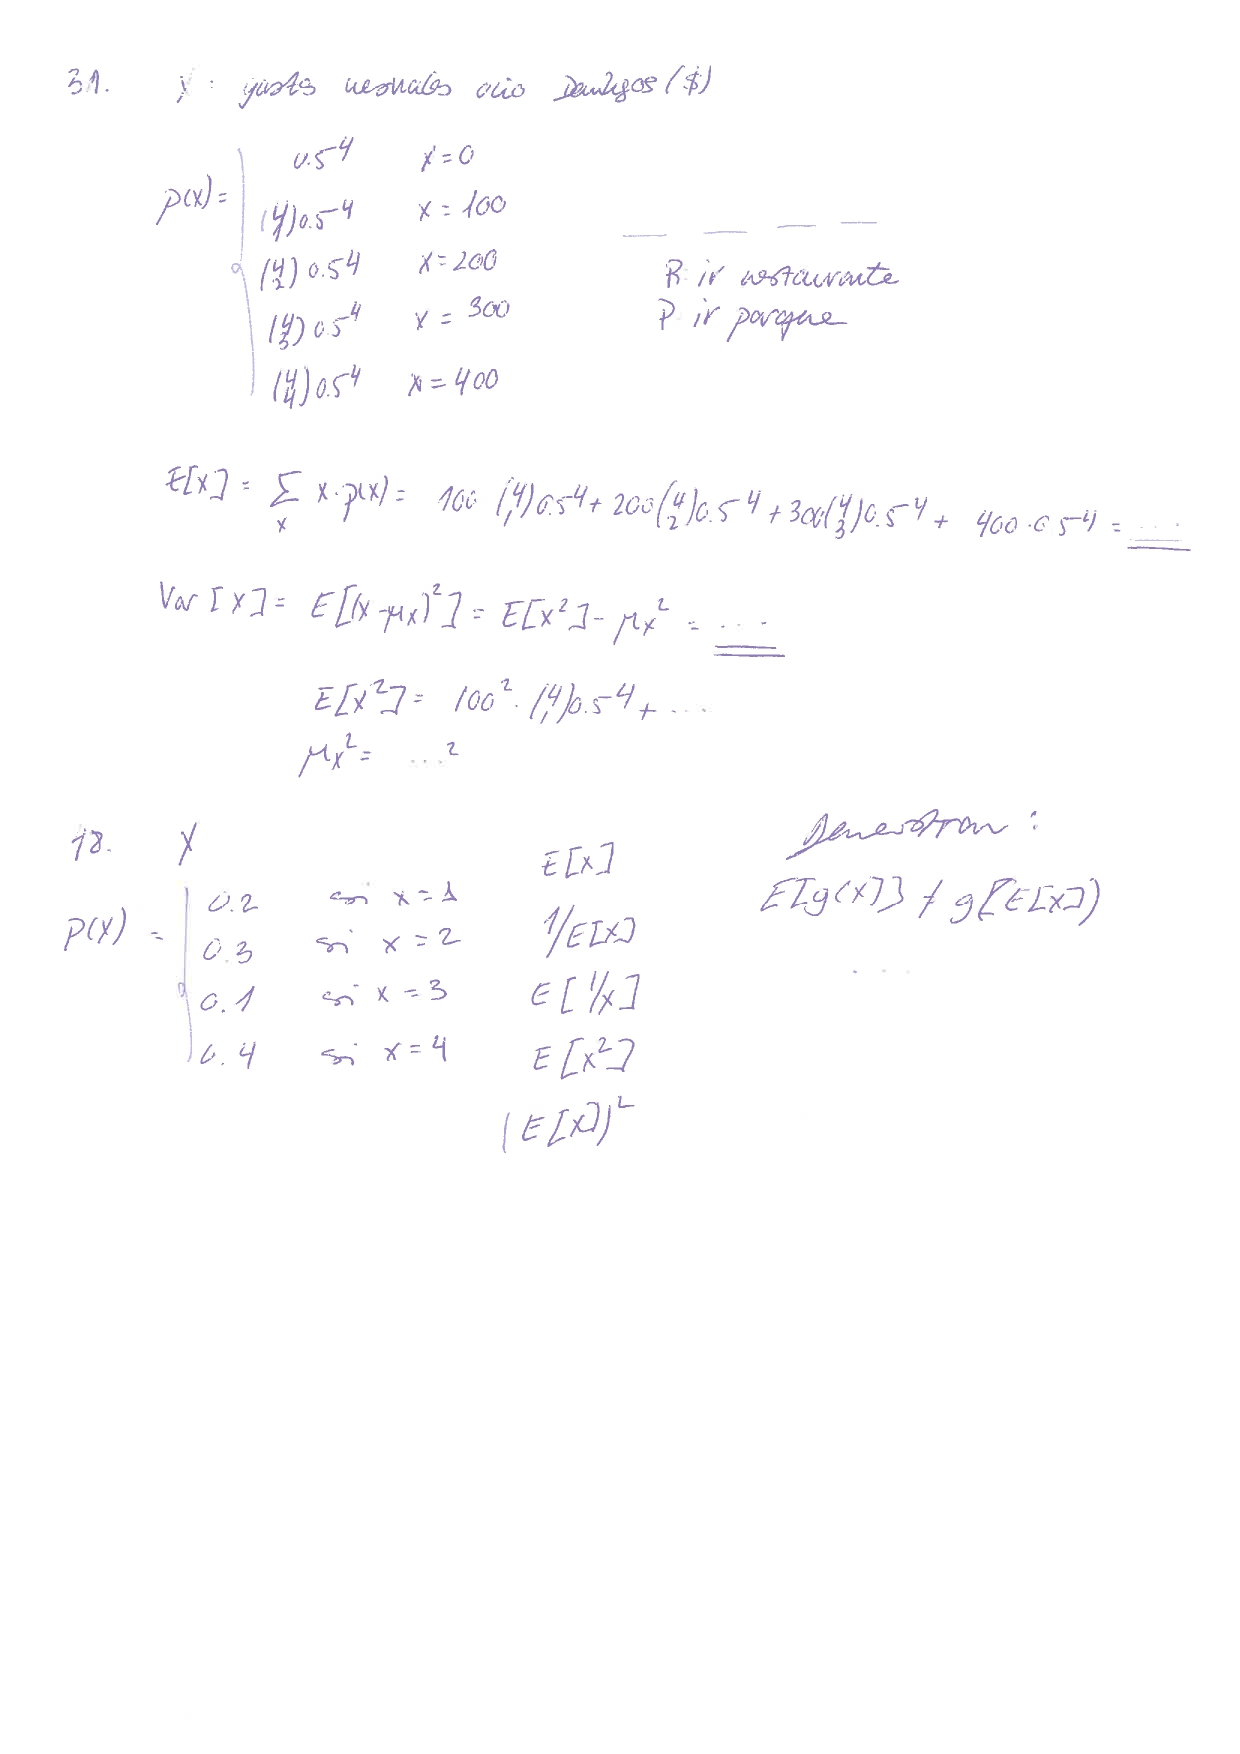 31. X : gastos mensuales ocio Domingos ($)
p(x) =
0.5^4 x = 0
(4 1) 0.5^4 x = 100
(4 2) 0.5^4 x = 200
(4 3) 0.5^4 x = 300
(4 4) 0.5^4 x = 400
R: ir restaurante
P: ir parque
E[X] = Σ_x x·p(x) = 100 (4 1) 0.5^4 + 200 (4 2) 0.5^4 + 300 (4 3) 0.5^4 + 400·0.5^4 = ....
Var [X] = E[(X-μx)^2] = E[X^2] - μx^2 = ....
E[X^2] = 100^2 · (4 1) 0.5^4 + ....
μx^2 = ...^2
18. X
p(x) =
0.2 si x = 1
0.3 si x = 2
0.1 si x = 3
0.4 si x = 4
E[X]
1/E[X]
E[1/X]
E[X^2]
(E[X])^2
E[g(X)] ≠ g(E[X])
...